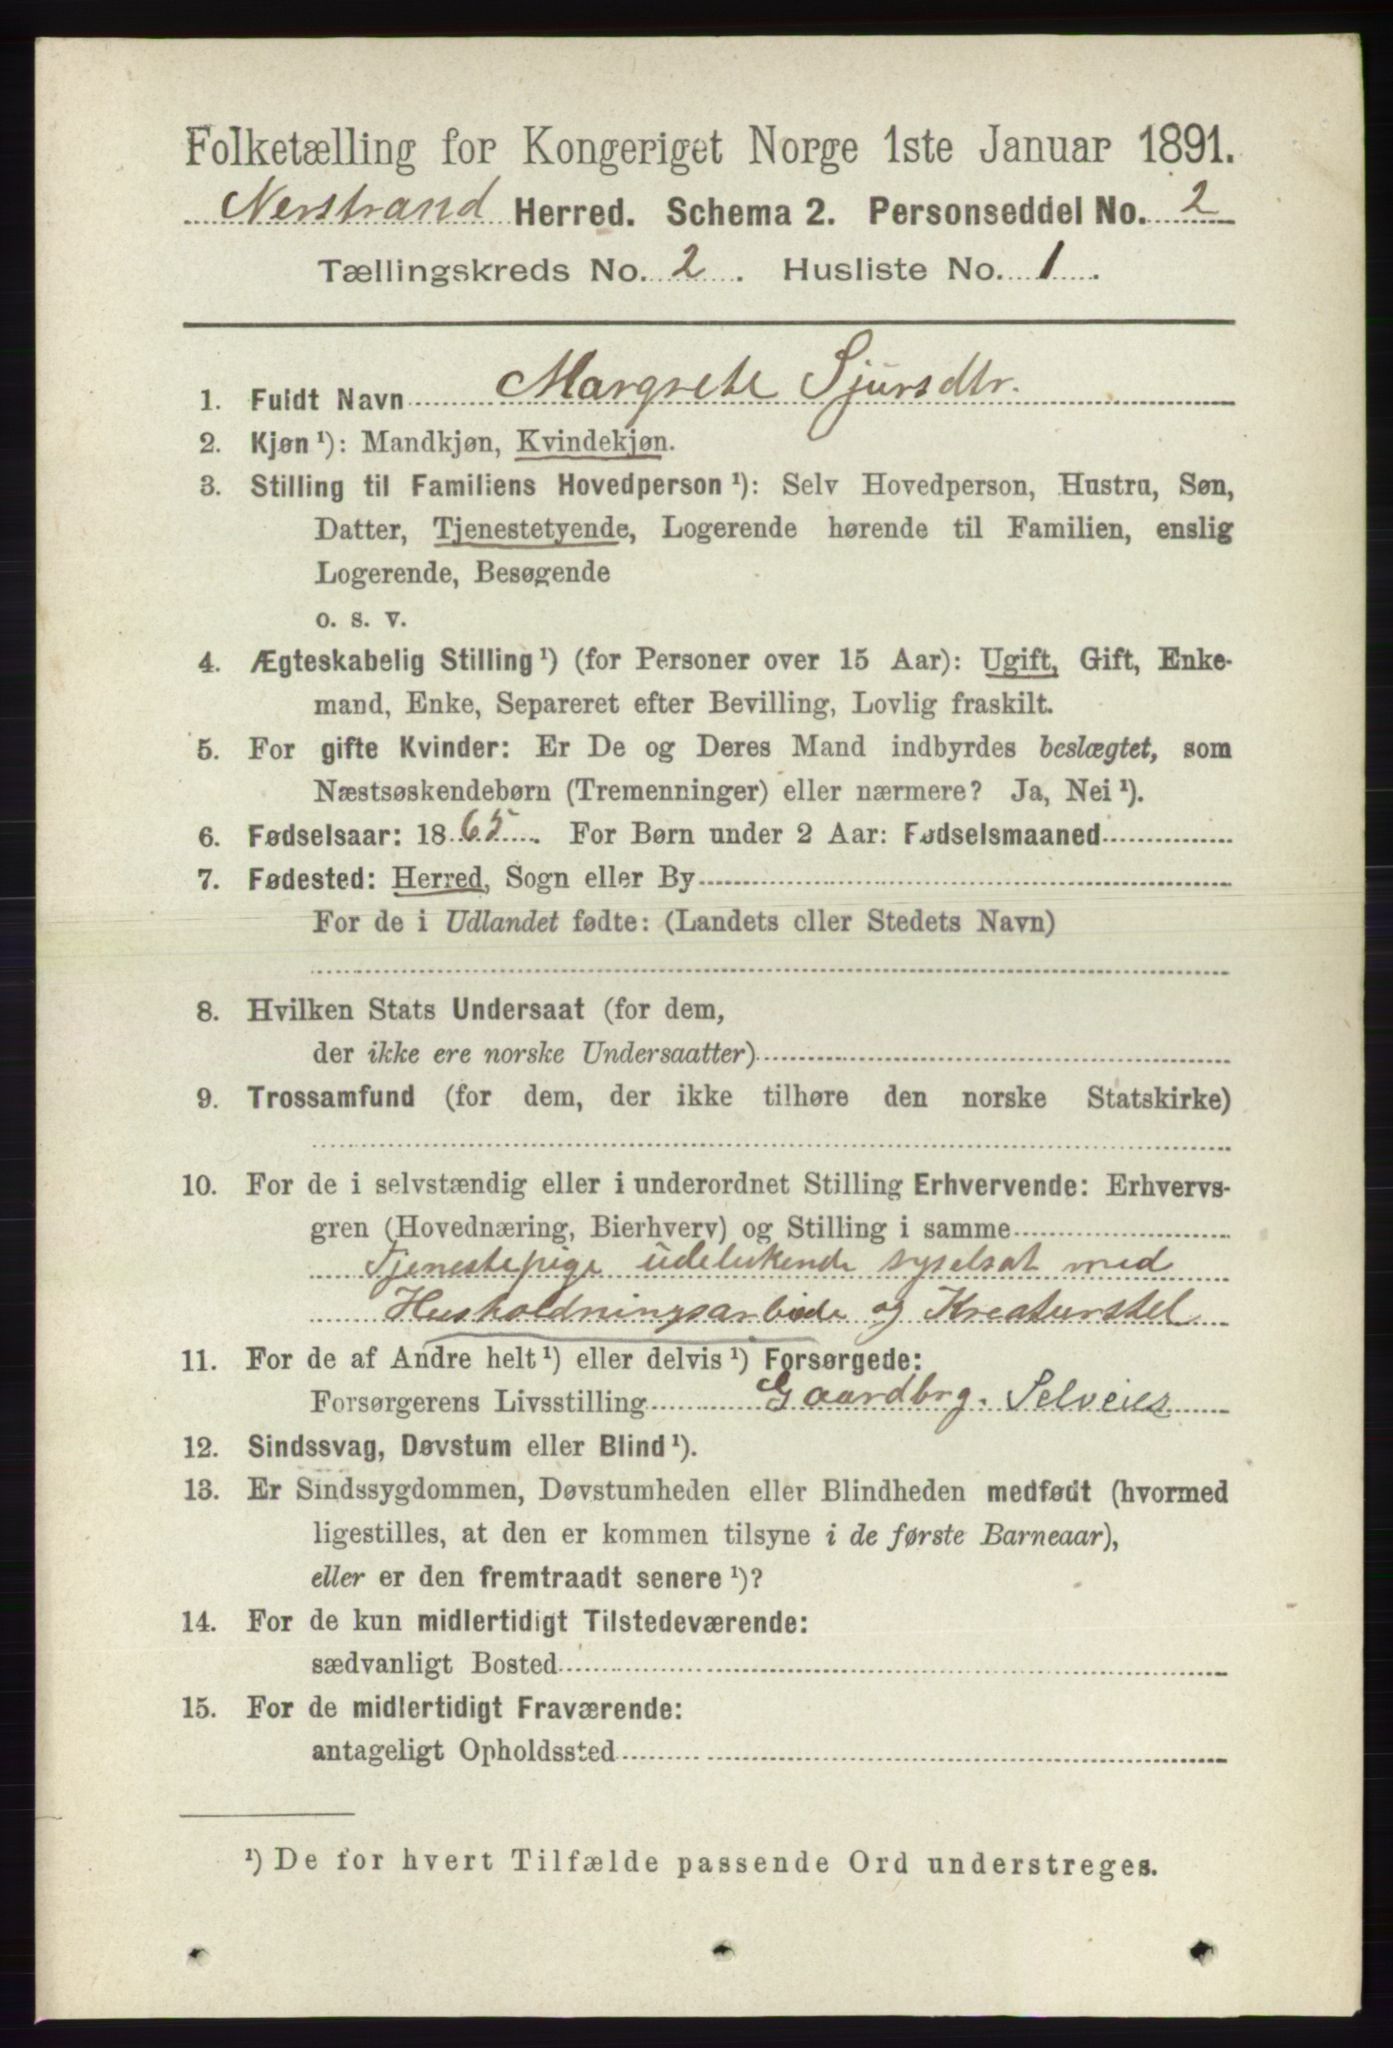 Folketælling for Kongeriget Norge 1ste Januar 1891.
Nerstrand Herred. Schema 2. Personseddel No. 2
Tællingskreds No. 2. Husliste No. 1.
1. Fuldt Navn Margrete Sjursdtr.
2. Kjøn ¹): Mandkjøn, Kvindekjøn.
3. Stilling til Familiens Hovedperson ¹): Selv Hovedperson, Hustru, Søn,
Datter, Tjenestetyende, Logerende hørende til Familien, enslig
Logerende, Besøgende
o. s. v.
4. Ægteskabelig Stilling ¹) (for Personer over 15 Aar): Ugift, Gift, Enke-
mand, Enke, Separeret efter Bevilling, Lovlig fraskilt.
5. For gifte Kvinder: Er De og Deres Mand indbyrdes beslægtet, som
Næstsøskendebørn (Tremenninger) eller nærmere? Ja, Nei ¹).
6. Fødselsaar: 1865. For Børn under 2 Aar: Fødselsmaaned
7. Fødested: Herred, Sogn eller By
For de i Udlandet fødte: (Landets eller Stedets Navn)
8. Hvilken Stats Undersaat (for dem,
der ikke ere norske Undersaatter)
9. Trossamfund (for dem, der ikke tilhøre den norske Statskirke)
10. For de i selvstændig eller i underordnet Stilling Erhvervende: Erhvervs-
gren (Hovednæring, Bierhverv) og Stilling i samme
Tjenestepige udelukende syselsat med
Husholdningsarbeide og Kreaturstel
11. For de af Andre helt ¹) eller delvis ¹) Forsørgede:
Forsørgerens Livsstilling Gaardbrg. Selveier
12. Sindssvag, Døvstum eller Blind ¹).
13. Er Sindssygdommen, Døvstumheden eller Blindheden medfødt (hvormed
ligestilles, at den er kommen tilsyne i de første Barneaar),
eller er den fremtraadt senere ¹)?
14. For de kun midlertidigt Tilstedeværende:
sædvanligt Bosted
15. For de midlertidigt Fraværende:
antageligt Opholdssted
¹) De for hvert Tilfælde passende Ord understreges.